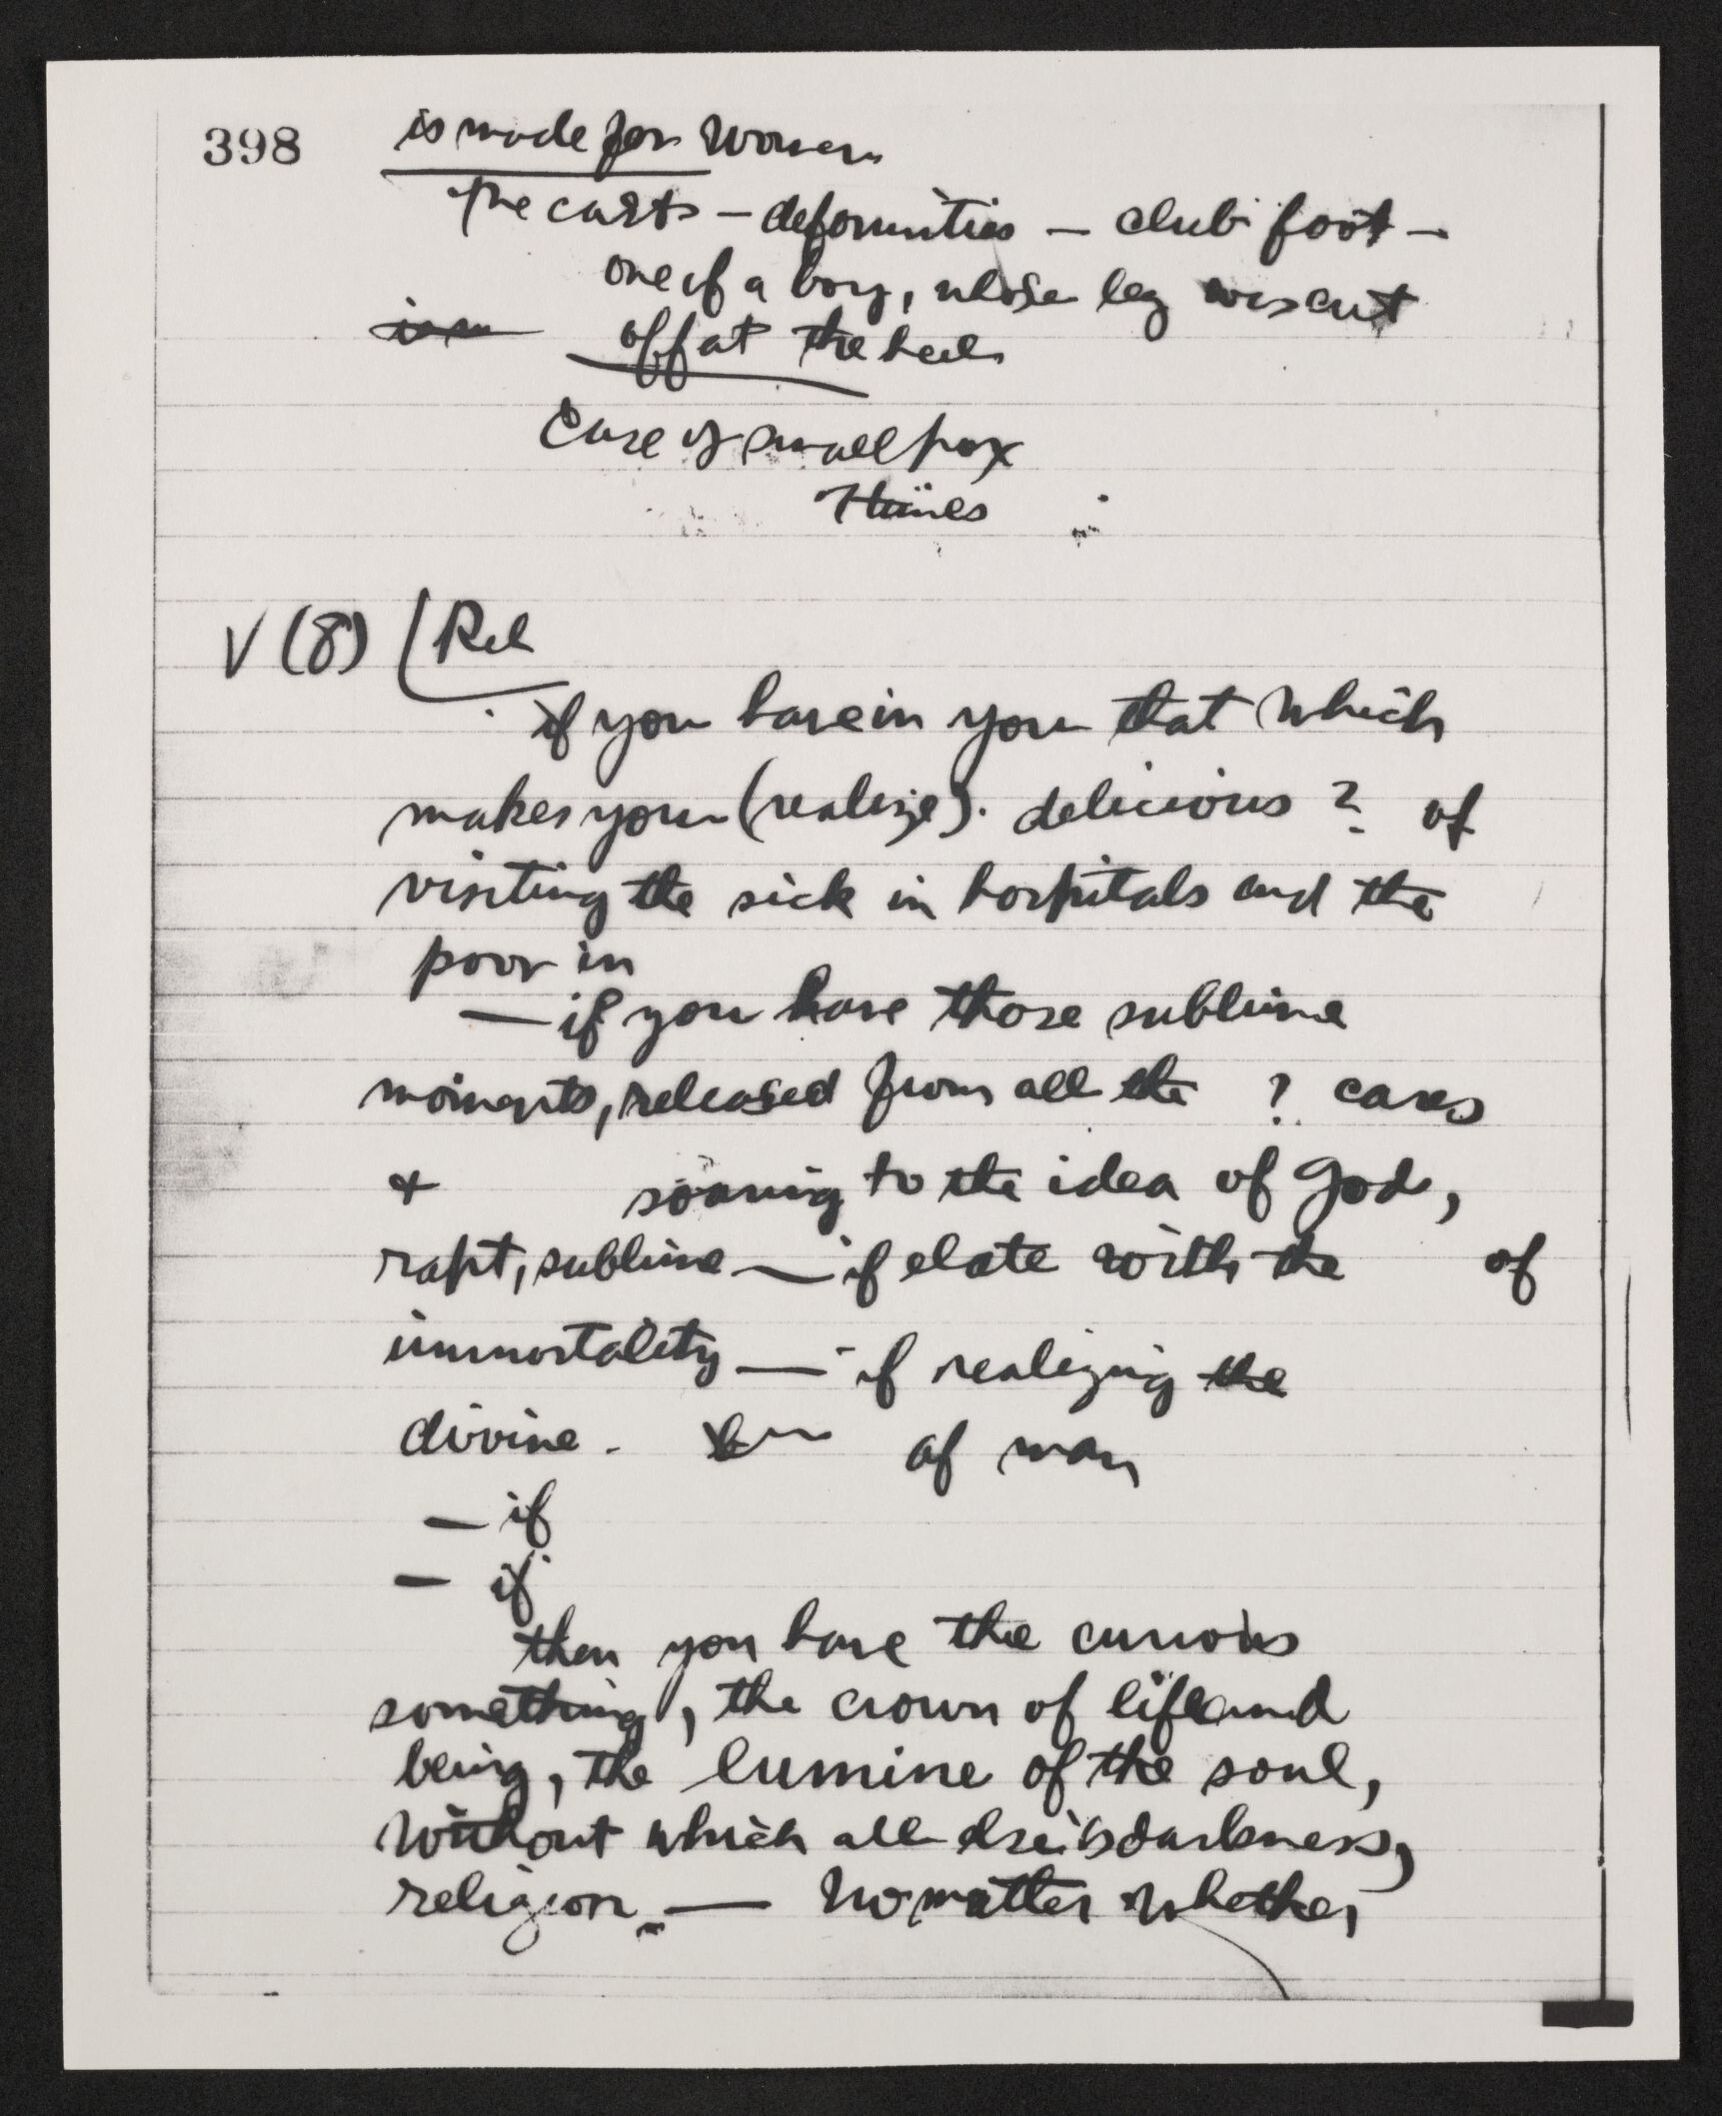 398
is made for women
The casts — deformities — club foot —
one of a boy, whose leg was cut
off at the heel
Case of small pox
V (8) Rel
if you have in you that which
makes you (realize). delicious ? of
visiting the sick in hospitals and the
poor in
— if you have those sublime
moments, released from all the ? cares
& soaring to the idea of God,
rapt, sublime — if elate with the of
immortality — if realizing the
divine. of man
— if
— if
then you have the curious
something, the crown of life and
being, the lumine of the soul,
without which all else is darkness,
religion. — No matter whether